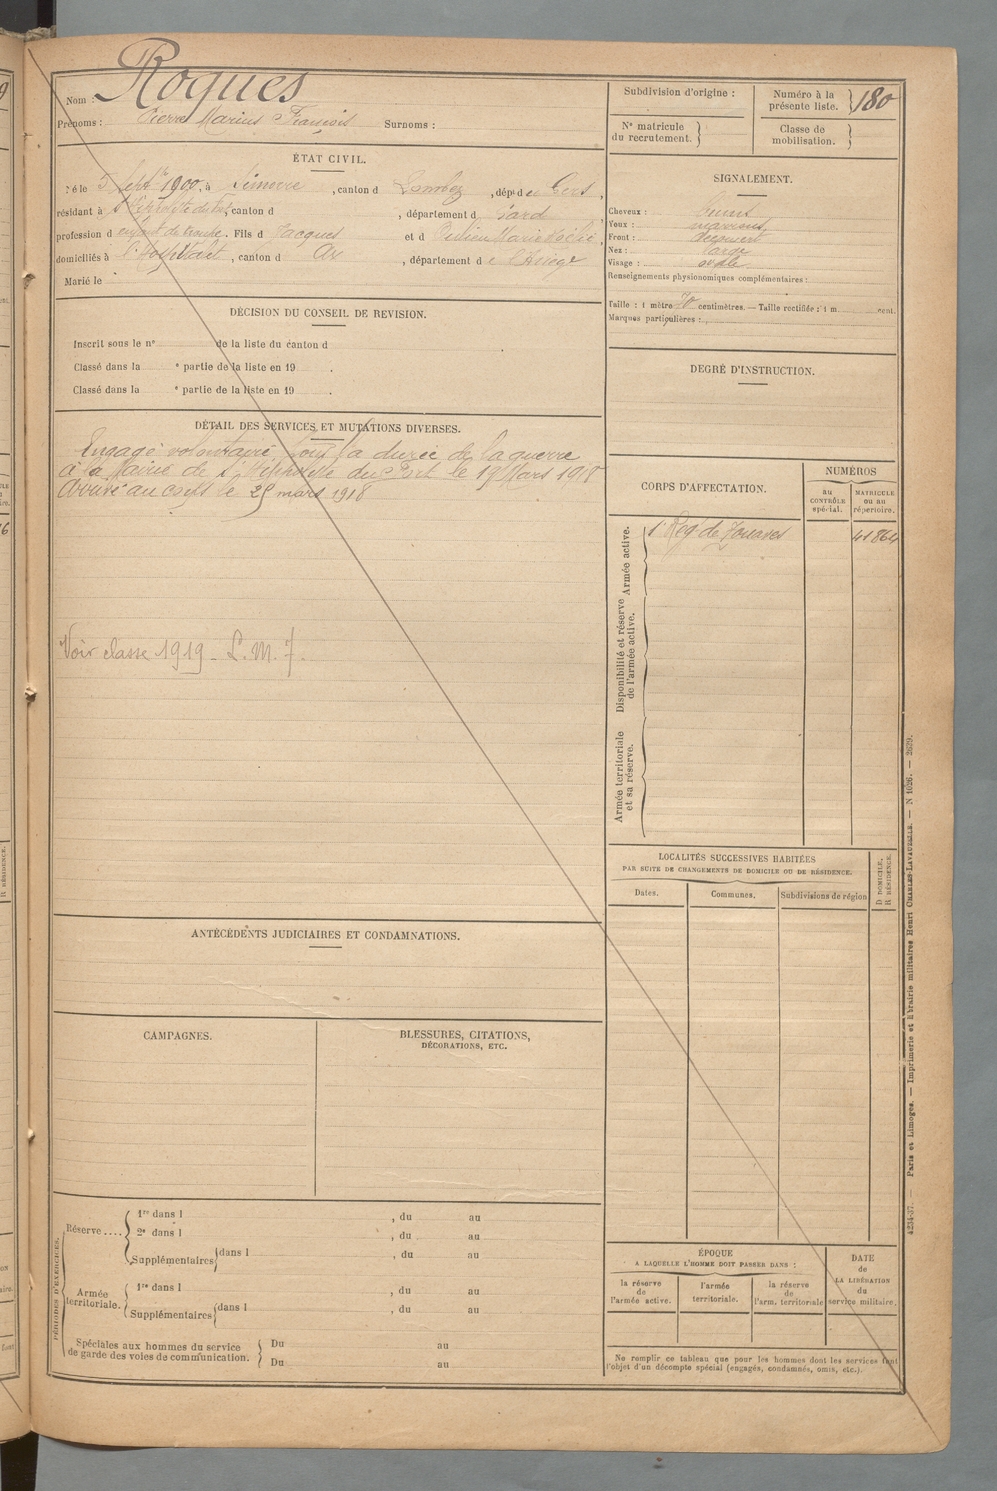 Nom : Roques
Prénoms : Pierre Marius François Surnoms :
ÉTAT CIVIL.
Né le 5 Septbre 1900, à Simorre, canton d Lombez, dépt du Gers,
résidant à St Hippolyte du Fort, canton d , département d Gard
profession d enfant de troupe. Fils d Jacques et d Marie
domiciliés à l'Hospitalet, canton d Ax, département de l'Ariège
Marié le
DÉCISION DU CONSEIL DE REVISION.
Inscrit sous le n° de la liste du canton d
Classé dans la e partie de la liste en 19 .
Classé dans la e partie de la liste en 19 .
DÉTAIL DES SERVICES ET MUTATIONS DIVERSES.
Engagé volontaire pour la durée de la guerre
à la Mairie de St Hippolyte du Fort le 19 Mars 1918
Arrivé au corps le 25 mars 1918
Voir classe 1919 - L. M. 7.
ANTÉCÉDENTS JUDICIAIRES ET CONDAMNATIONS.
CAMPAGNES.
BLESSURES, CITATIONS,
DÉCORATIONS, ETC.
PÉRIODES D'EXERCICES.
Réserve ....
1re dans l , du au
2e dans l , du au
Supplémentaires dans l , du au
Armée
territoriale.
1re dans l , du au
Supplémentaires dans l , du au
Spéciales aux hommes du service
de garde des voies de communication.
Du au
Du au
Subdivision d'origine :
Numéro à la
présente liste. 180
N° matricule
du recrutement.
Classe de
mobilisation.
SIGNALEMENT.
Cheveux : bruns
Yeux : marrons
Front : découvert
Nez : large
Visage : ovale
Renseignements physionomiques complémentaires :
Taille : 1 mètre 70 centimètres. — Taille rectifiée : 1 m. cent.
Marques particulières :
DEGRÉ D'INSTRUCTION.
CORPS D'AFFECTATION.
NUMÉROS
au
CONTRÔLE
spécial.
MATRICULE
ou au
répertoire.
Armée active.
1r Reg de Zouaves 41864
Disponibilité et réserve
de l'armée active.
Armée territoriale
et sa réserve.
LOCALITÉS SUCCESSIVES HABITÉES
PAR SUITE DE CHANGEMENTS DE DOMICILE OU DE RÉSIDENCE.
Dates.
Communes.
Subdivisions de région
D DOMICILE.
R RÉSIDENCE.
ÉPOQUE
A LAQUELLE L'HOMME DOIT PASSER DANS :
la réserve
de
l'armée active.
l'armée
territoriale.
la réserve
de
l'arm. territoriale
DATE
de
LA LIBÉRATION
du
service militaire.
Ne remplir ce tableau que pour les hommes dont les services font
l'objet d'un décompte spécial (engagés, condamnés, omis, etc.).
4234-37. — Paris et Limoges. — Imprimerie et librairie militaires Henri CHARLES-LAVAUZELLE. — N 1026. — 2629.